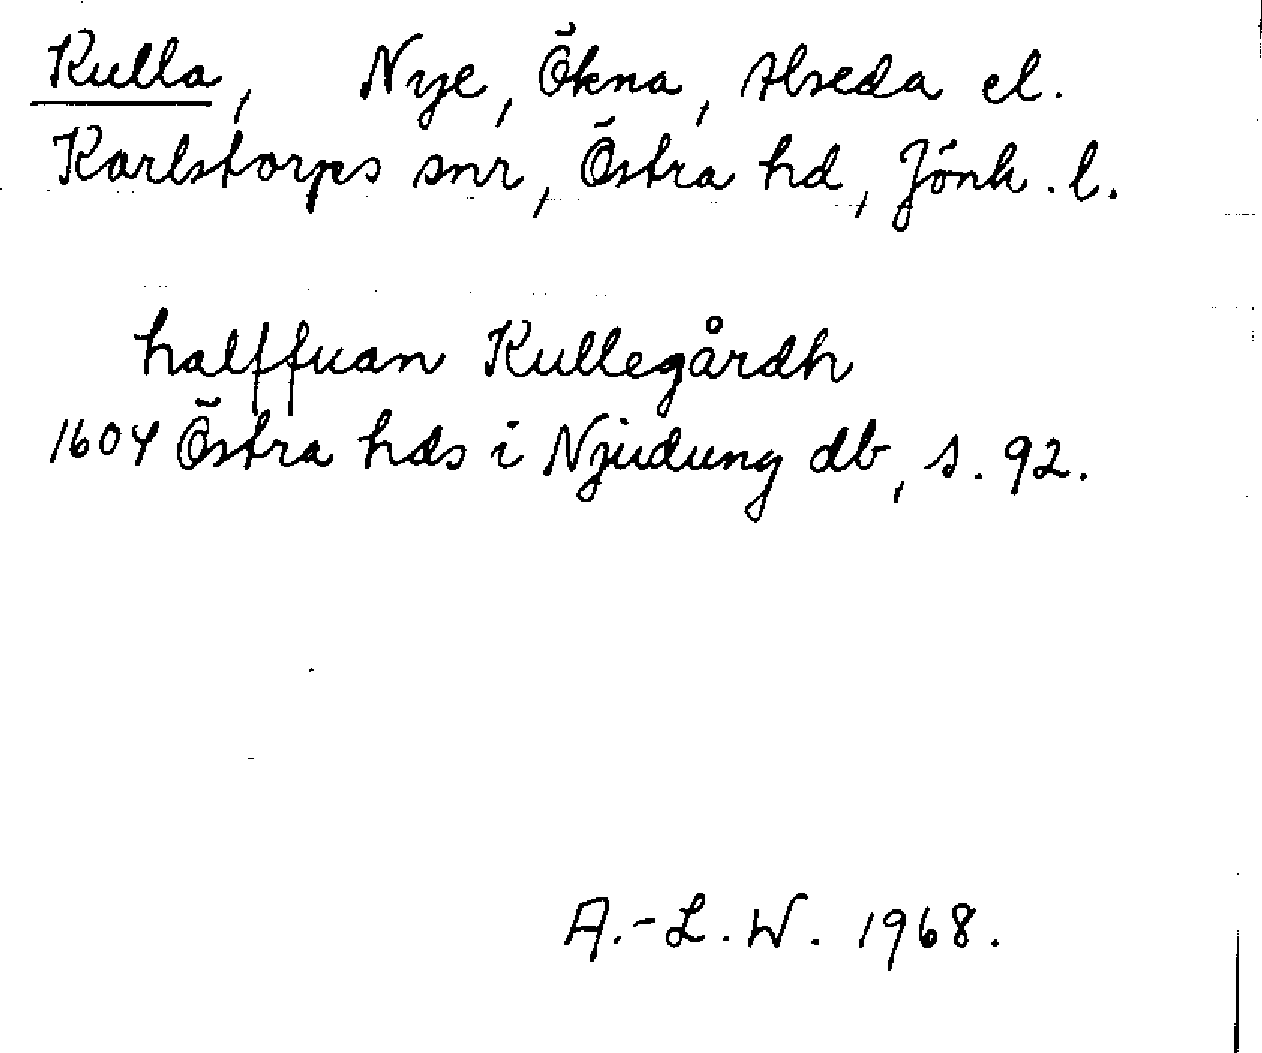 Kulla, Nye, Ökna, Alseda el.
Karlstorps snr, Östra hd, Jönk. l.
halffuan Kullegårdh
1604 Östra hds i Njudung db, s. 92.
A.-L. W. 1968.